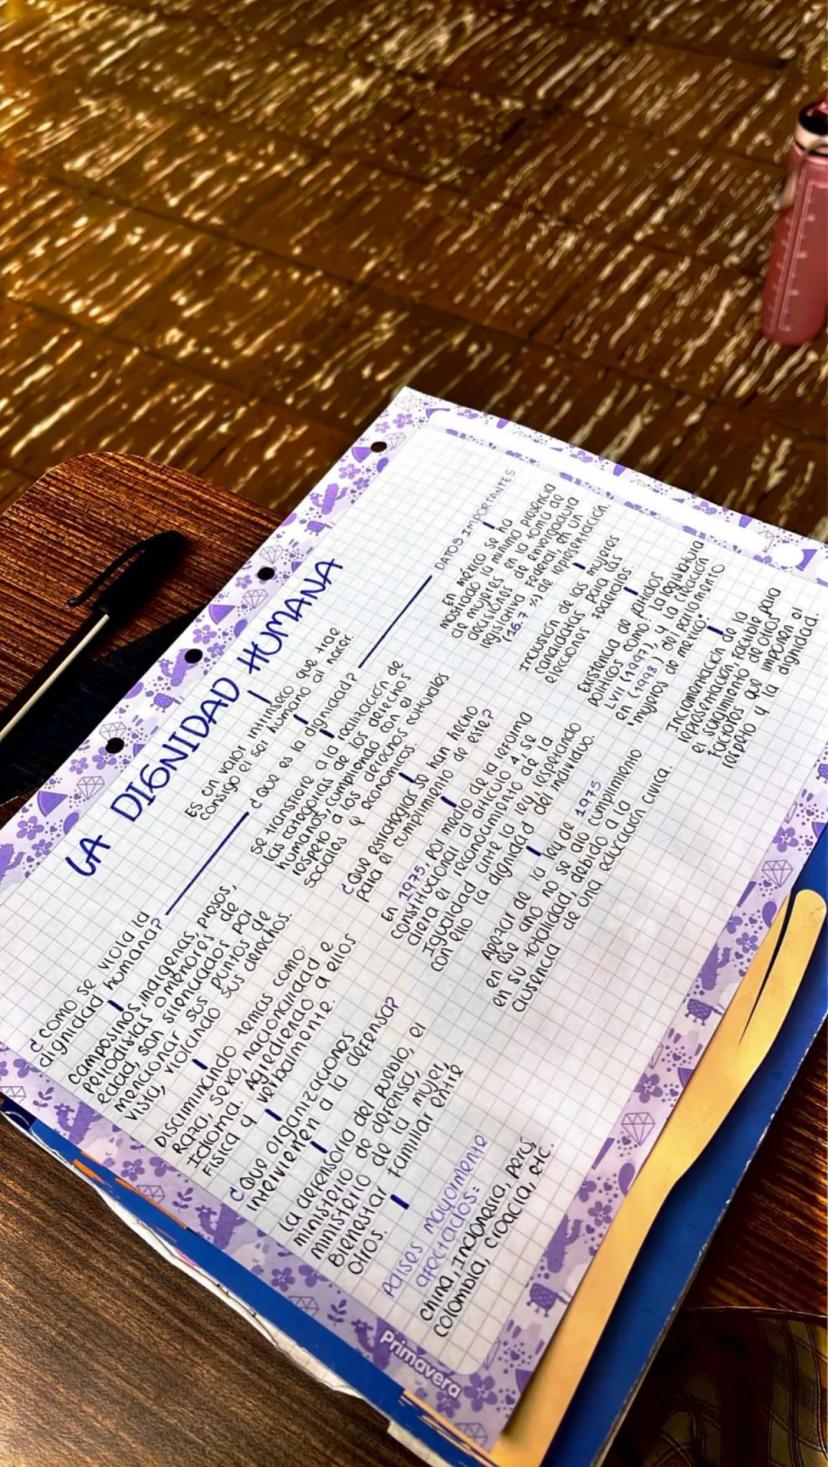 LA DIGNIDAD HUMANA
ES un valor intrínseco que trae
consigo el ser humano al nacer.
¿Como se viola la
dignidad humana?
campesinos, indígenas, presos,
periodistas o menores de
edad, son silenciados por
mencionar sus puntos de
vista, violando sus derechos.
Discriminando temas como:
Raza, sexo, nacionalidad e
Idioma. Agrediendo a ellos
Física y verbalmente.
¿Que organizaciones
intervienen a la defensa?
La defensoria del pueblo, el
ministerio de defensa,
ministerio de la mujer,
Bienestar familiar entre
otros.
Países mayormente
afectados:
China, Indonesia, perú,
Colombia, Croacia, etc.
¿Que es la dignidad?
Se transfiere a la realización de
las categorias de los derechos
humanos, cumpliendo con el
respeto a los derechos culturales
sociales y económicos.
¿Que estrategias se han hecho
para el cumplimiento de este?
En 1975, por medio de la reforma
constitucional al artículo 4, se
altera el reconocimiento de la
Igualdad ante la ley, respetando
con ello la dignidad del individuo.
Apezar de la ley de 1975
en ese año no se dio cumplimiento
en su totalidad, debido a la
ausencia de una educación civica.
DATOS IMPORTANTES
En méxico se ha
mostrado la minima presencia
de mujeres en la toma de
decisiones de envergadura
legislativa Federal, en un
(16.7 %) de representación.
Inclusión de las mujeres
candidatas para las
elecciones federales
Existencia de partidos
políticos como: la legislatura
LVII (1997) y la creación
en (1998) del parlamento
"mujeres de méxico"
Incrementación de la
representación, factible para
el surgimiento de otros
factores que imponen el
respeto y la dignidad.
Primavera